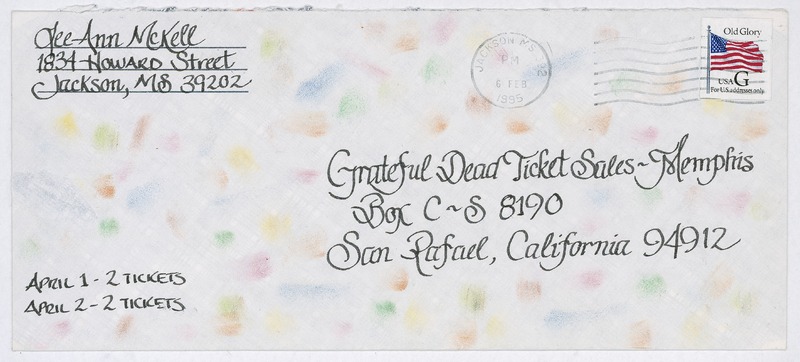 Lee-Ann McKell
1834 Howard Street
Jackson, MS 39202
JACKSON MS 392
PM
6 FEB
1995
Old Glory
USA G
For U.S. addresses only
Grateful Dead Ticket Sales ~ Memphis
Box C~S 8190
San Rafael, California 94912
APRIL 1 - 2 TICKETS
APRIL 2 - 2 TICKETS